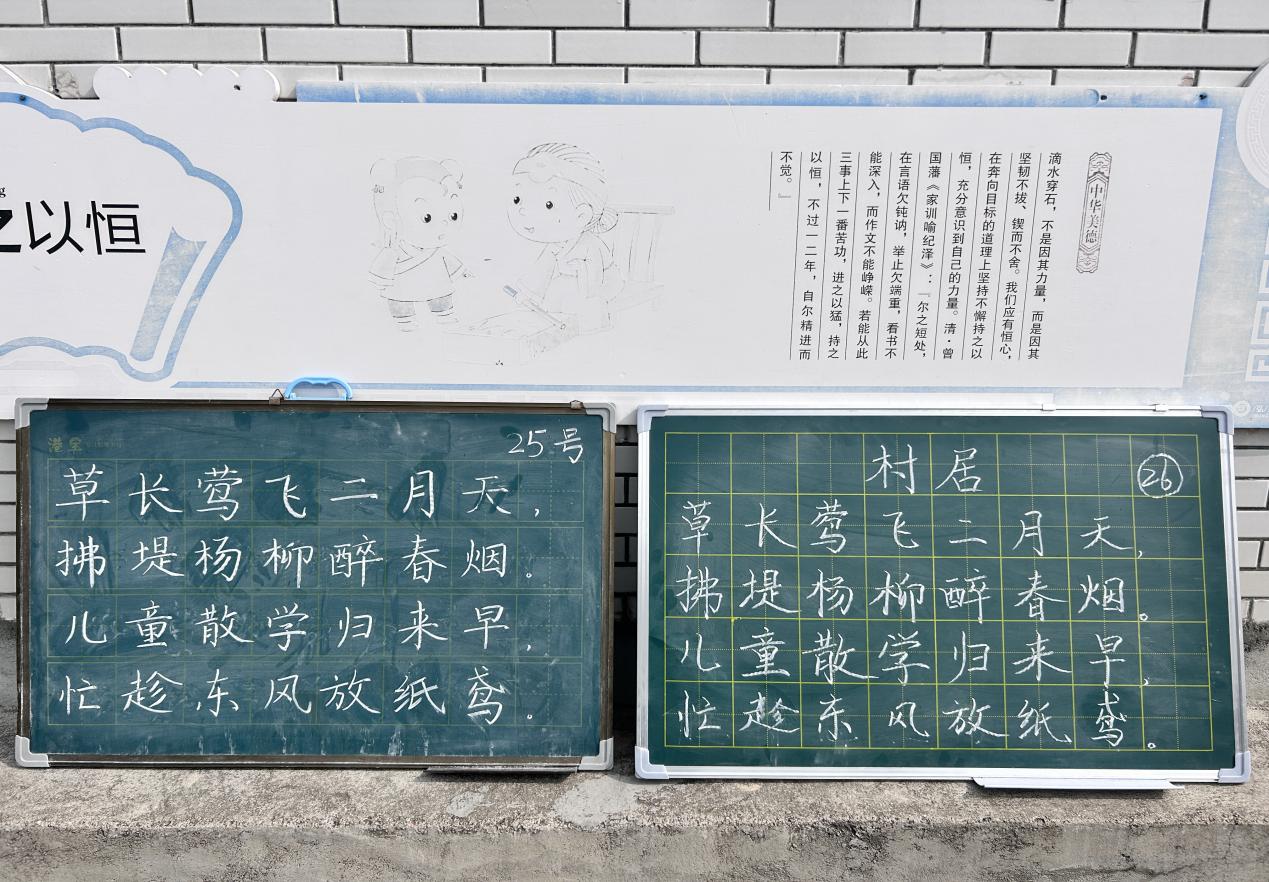 之以恒
中华美德
滴水穿石，不是因其力量，而是因其
坚韧不拔、锲而不舍。我们应有恒心，
在奔向目标的道理上坚持不懈持之以
恒，充分意识到自己的力量。清·曾
国藩《家训喻纪泽》：『尔之短处，
在言语欠钝讷，举止欠端重，看书不
能深入，而作文不能峥嵘。若能从此
三事上下一番苦功，进之以猛，持之
以恒，不过一二年，自尔精进而
不觉。』
25号
草长莺飞二月天，
拂堤杨柳醉春烟。
儿童散学归来早，
忙趁东风放纸鸢。
村居
26
草长莺飞二月天，
拂堤杨柳醉春烟。
儿童散学归来早，
忙趁东风放纸鸢。